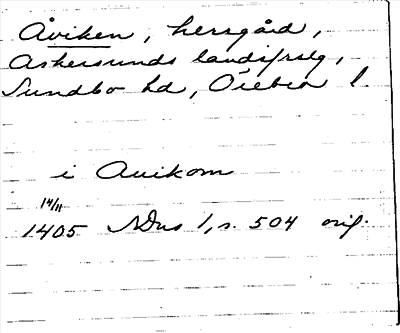 Åviken, herrgård,
Askersunds landsförsg,
Sundbo hd, Örebro l.
i Auikom
14/11
1405 SDns 1, s. 504 orig.